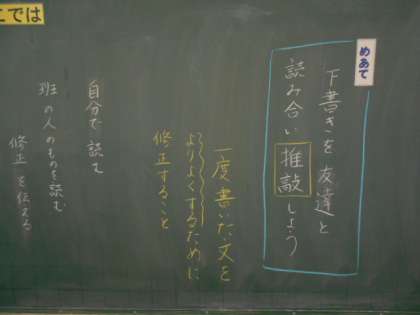 めあて
下書きを友達と
読み合い推敲しよう
一度書いた文を
よりよくするために
修正すること
自分で読む
班の人のものを読む
修正を伝える
こでは